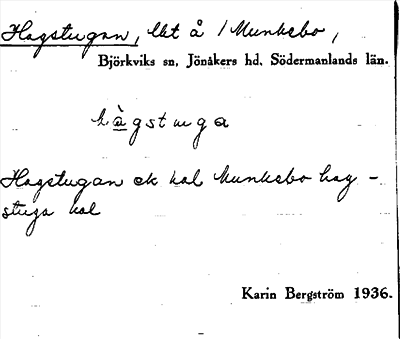 Hagstugan, lht å 1 Munkebo,
Björkviks sn, Jönåkers hd, Södermanlands län.
hàgstuga
Hagstugan ek kal Munkebo hag-
stuga kal
Karin Bergström 1936.